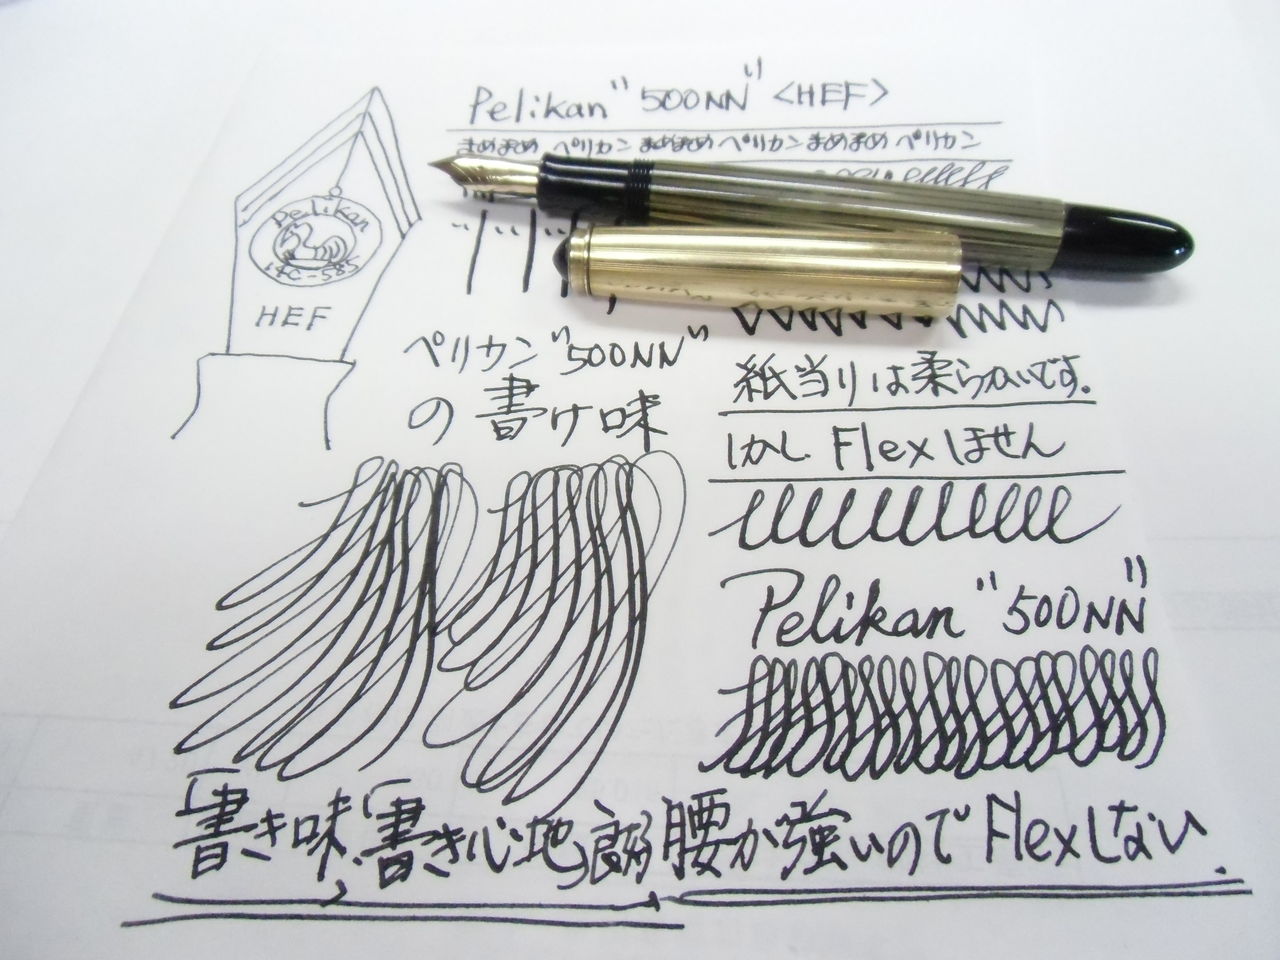 Pelikan "500NN" <HEF>
まめまめ ペリカン まめまめ ペリカン まめまめ ペリカン
Pelikan
14C-585
HEF
ペリカン "500NN"
の書け味
紙当りは柔らかいです。
しかし Flexしません
Pelikan "500NN"
「書き味、「書き心地
腰が強いのでFlexしない.